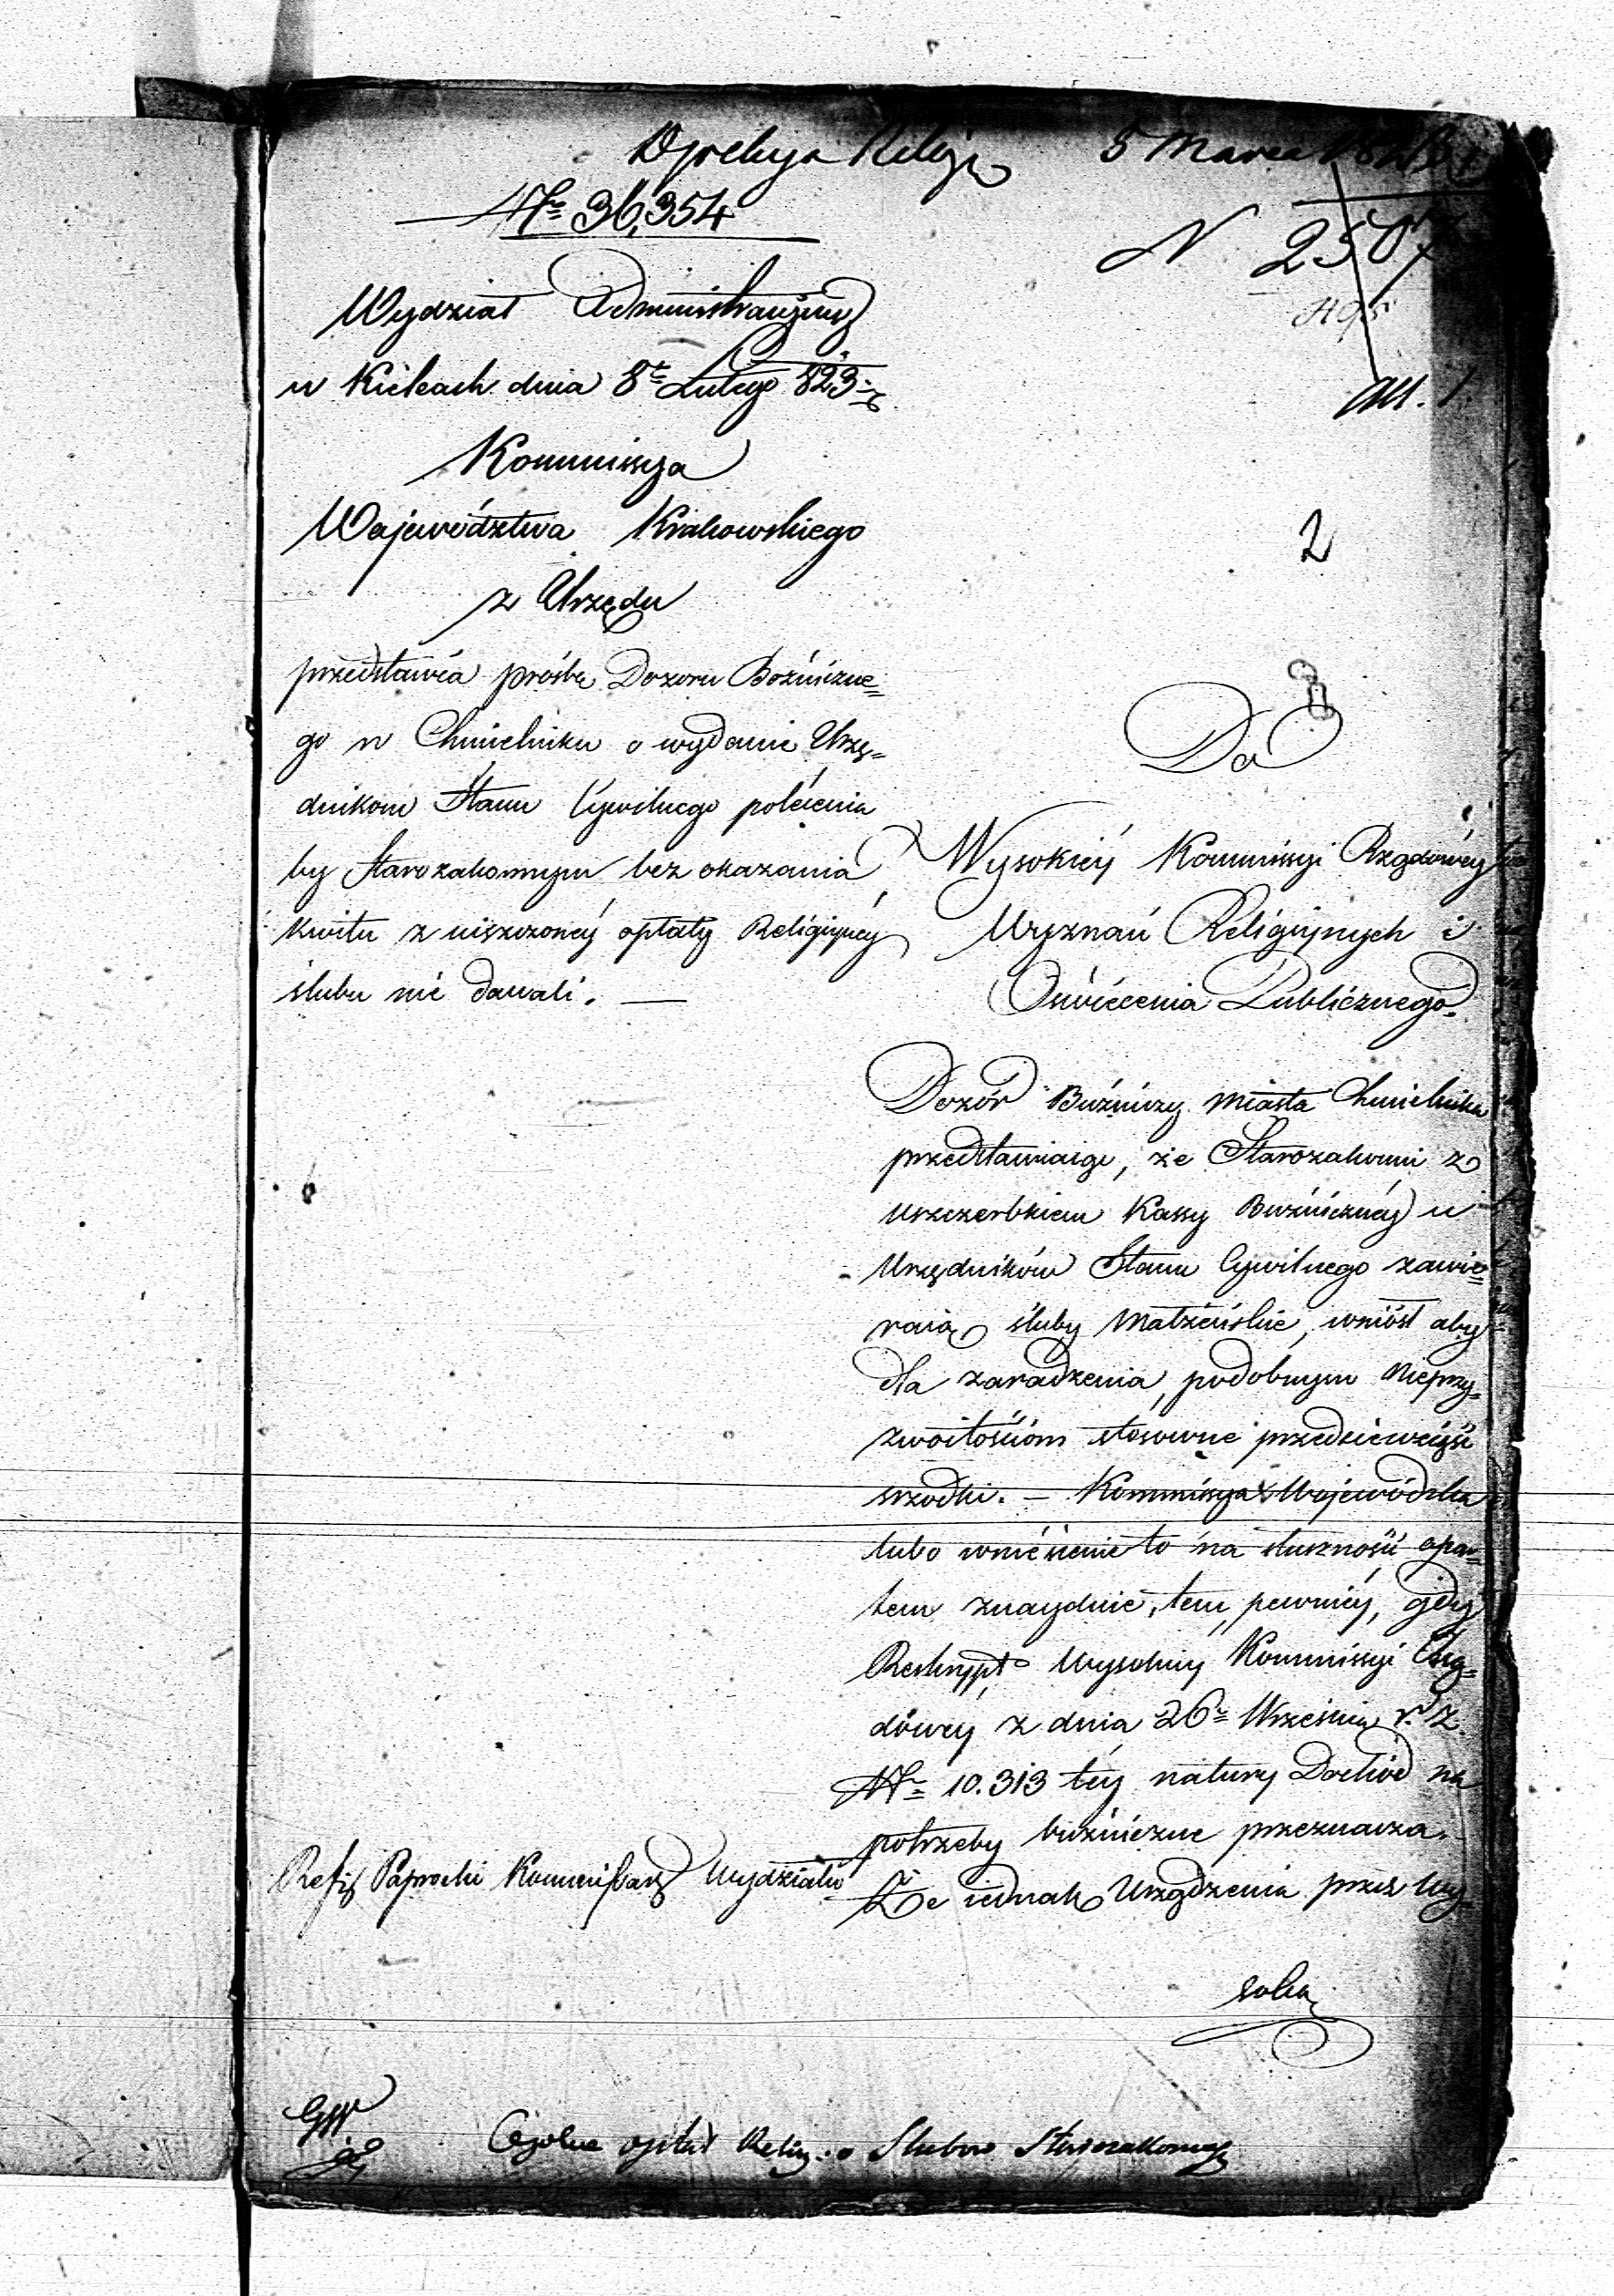 Dyrekcya Religij 5 Marca 1823
Nr 36,354
N 2507
495
Wydział Administracyiny
w Kielcach dnia 8o Lutego 823 r.
All. 1.
Kommissya
Województwa Krakowskiego
z Urzędu
2
przedstawia prośbę Dozoru Bożniczne=
go w Chmielniku o wydanie Urzę=
dnikom Stanu Cywilnego polecenia
by Starozakonnym bez okazania
kwitu z uiszczoney opłaty Religijney
ślubu nie dawali. —
Do
Wysokiey Kommissyi Rządowey
Wyznań Religijnych i
Oświecenia Publicznego.
Dozór Bużniczy Miasta Chmielnika
przedstawiaiąc, że Starozakonni z
uszczerbkiem Kassy Bużniczney u
Urzędników Stanu Cywilnego zawie=
raią śluby Małżeńskie, wniosł aby
dla zaradzenia podobnym nieprzy=
zwoitościom stosowne przedsiewziąść
srzodki. — Kommissya Wojewódzka
lubo wniesienie to na słuszność opar=
tem znayduie, tem pewniey, gdy
Reskrypt Wysokiey Kommissyi Rzą=
dowey z dnia 26o Września r. z.
Nr 10.313 tey natury Dochód na
potrzeby bużniczne przeznacza.
Że iednak Urządzenia przez Wy
soką
Paprocki Kommissarz Wydziału
opłat Relig: o Slubow Starozakonnych